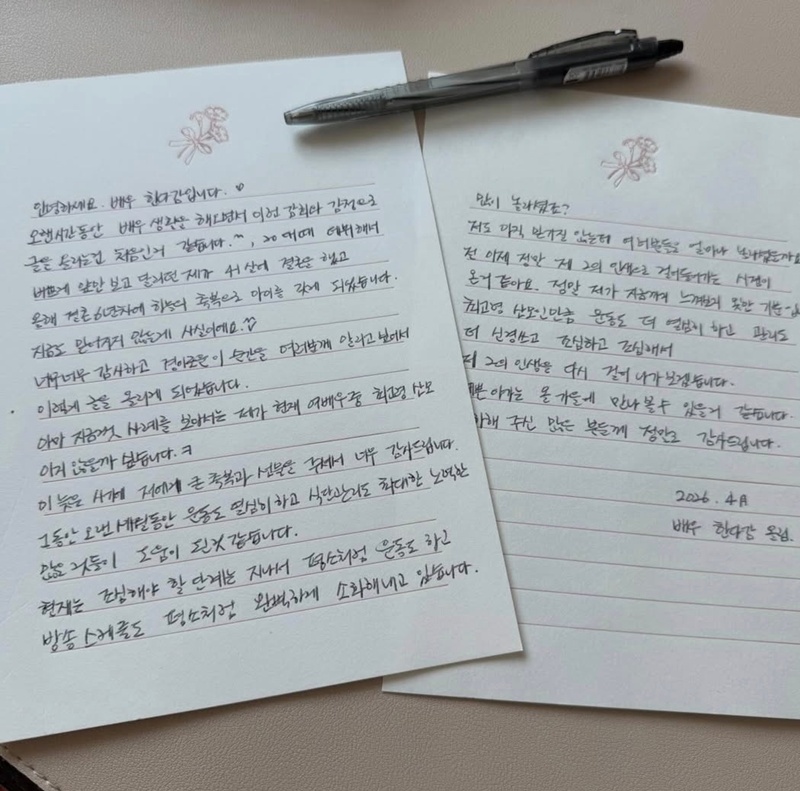 안녕하세요. 배우 한다감입니다. ♡
오랜시간동안 배우 생활을 해오면서 이런 감회와 감정으로
글을 올리는건 처음인거 같습니다.^^, 20대때 데뷔해서
바쁘게 앞만 보고 달리던 제가 41살에 결혼을 했고
올해 결혼6년차에 하늘의 축복으로 아이를 갖게 되었습니다.
지금도 믿어지지 않는게 사실이에요.
너무너무 감사하고 경이로운 이 순간을 여러분께 알리고 싶어서
이렇게 글을 올리게 되었습니다.
아마 지금껏 사례를 보아서는 제가 현재 여배우중 최고령 산모
이지 않을까 싶습니다.ㅋ
이 늦은 시기에 저에게 큰 축복과 선물을 주셔서 너무 감사드립니다.
그동안 오랜세월동안 운동도 열심히하고 식단관리도 최대한 노력한
많은 것들이 도움이 된것 같습니다.
현재는 조심해야 할 단계는 지나서 평소처럼 운동도 하고
방송스케쥴도 평소처럼 완벽하게 소화해내고 있습니다.
많이 놀라셨죠?
저도 아직 믿기질 않는데 여러분들은 얼마나 놀라셨을까요
전 이제 정말 제 2의 인생으로 걸어들어가는 시점이
온거 같아요. 정말 제가 지금까지 느껴보지 못한 기분
최고령 산모인만큼 운동도 더 열심히 하고 관리도
더 신경쓰고 조심하고 조심해서
제 2의 인생을 다시 걸어 나가보겠습니다.
아가는 올 가을에 만나볼수 있을거 같습니다.
주신 많은 분들께 정말로 감사드립니다.
2026. 4月
배우 한다감 올림.